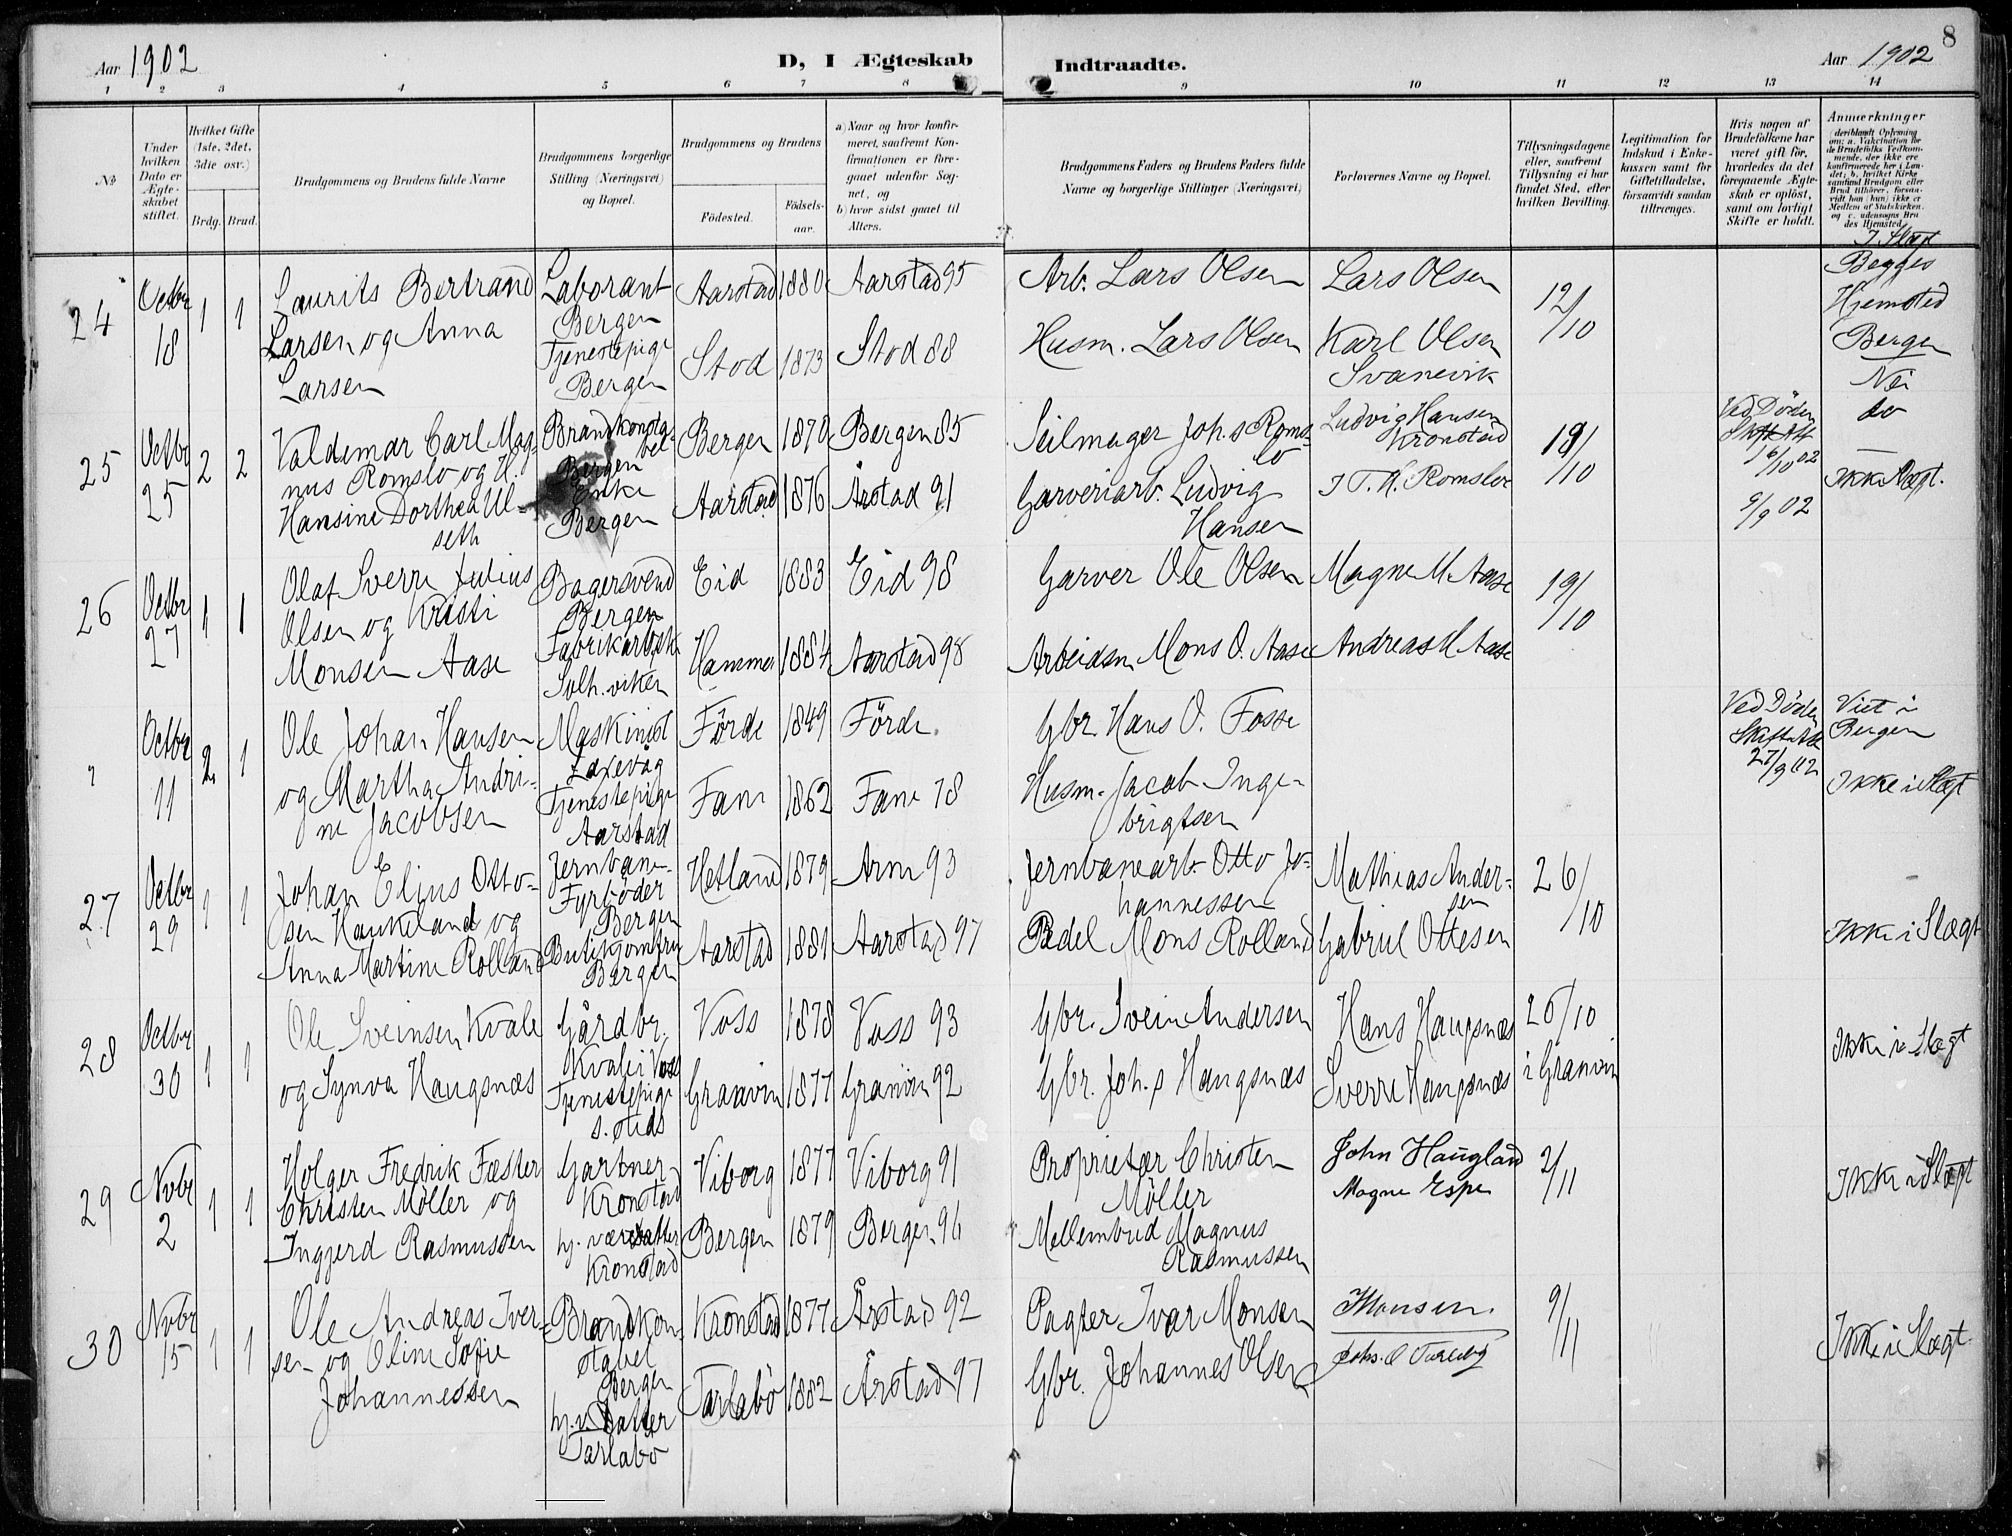 Aar 1902
D, I Ægteskab Indtraadte.
8
Aar 1902
1 2 3 4 5 6 7 8 9 10 11 12 13 14
No
Under hvilken Dato er Ægteskabet stiftet.
Hvilket Gifte (1ste, 2det, 3die osv.)
Brdg. Brud.
Brudgommens og Brudens fulde Navne
Brudgommens borgerlige Stilling (Næringsvei) og Bopæl.
Brudgommens og Brudens
Fødested.
Fødselsaar.
a) Naar og hvor konfirmeret, saafremt Konfirmationen er foregaaet udenfor Sognet, og
b) hvor sidst gaaet til Alters.
Brudgommens Faders og Brudens Faders fulde Navne og borgerlige Stillinger (Næringsvei)
Forlovernes Navne og Bopæl.
Tillysningsdagene eller, saafremt Tillysning ei har fundet Sted, efter hvilken Bevilling.
Legitimation for Indskud i Enkekassen samt for Giftetilladelse, forsaavidt saadan tiltrænges.
Hvis nogen af Brudefolkene har været gift før, hvorledes da det foregaaende Ægteskab er opløst, samt om lovligt Skifte er holdt.
Anmærkninger
(deriblandt Oplysning om: a. Vakcination for de Brudefolks Vedkommende, der ikke ere konfirmerede her i Landet; b. hvilket Kirkesamfund Brudgom eller Brud tilhører, forsaavidt han (hun) ikke er Medlem af Statskirken, og c. udensogns Brudes Hjemsted.
I Slægt
24
Octbr 18
1 1
Laurits Bertrand
Larsen og Anna
Larsen
Laborant
Bergen
Tjenestepige
Bergen
Aarstad 1880 Aarstad 95
Stod 1873 Stod 88
Arb. Lars Olsen
Husm. Lars Olsen
Lars Olsen
Karl Olsen
Svanevik
12/10
Begges
Hjemsted
Bergen
Nei
25
Octbr 25
2 2
Valdemar Carl Mag-
nus Romslo og H.
Hansine Dorthea Ul-
seth
Brandkonsta-
bel
Bergen
Enke
Bergen
Bergen 1870 Bergen 85
Aarstad 1876 Årstad 91
Seilmager Joh.s Roms-
lo
Garveriarb. Ludvig
Hansen
Ludvig Hansen
Kronstad
J T. H. Romsloe
19/10
Ved Døden
16/10 02
9/9 02
do
Ikke Slægt.
26
Octbr 27
1 1
Olaf Sverre Julius
Olsen og Kristi
Monsen Aase
Bagersvend
Bergen
Fabrikarb.ske
Solh.viken
Eid 1883 Eid 98
Hammer 1884 Aarstad 98
Garver Ole Olsen
Arbeidsm Mons O. Aase
Magne M Aase
Andreas M Aase
19/10
"
Octbr 11
2 1
Ole Johan Hansen
og Martha Andri-
ne Jacobsen
Maskinist
Laxevåg
Tjenestepige
Aarstad
Førde 1849 Førde.
Fane 1862 Fane 78
Gbr. Hans O. Fosse
Husm. Jacob Inge-
brigtsen
Ved Døden
Skifte Att
27/9 02
Viet i
Bergen
Ikke i Slægt
27
Octbr 29
1 1
Johan Elius Otto-
sen Haukeland og
Anna Martine Rolland
Jernbane-
Fyrbøder
Bergen
Butikjomfru
Bergen
Hetland 1879 Arne 93
Aarstad 1881 Aarstad 97
Jernbanearb. Otto Jo-
hannessen
Pedel Mons Rolland
Mathias Ander-
sen
Gabriel Ottesen
26/10
Ikke i Slægt
28
Octbr 30
1 1
Ole Sveinsen Kvale
og Synva Haugsnæs
Gårdbr.
Kvale i Voss
Tjenestepige
s. steds
Voss 1878 Voss 93
Graavin 1877 Granvin 92
Gbr. Svein Andersen
Gbr. Joh.s Haugsnæs
Hans Haugsnæs
Sverre Haugsnæs
26/10
i Granvin
Ikke i Slægt
29
Novbr 2
1 1
Holger Fredrik Fæster
Christen Møller og
Ingjerd Rasmussen
Gartner
Kronstad
hj. vær. datter
Kronstad
Viborg 1877 Viborg 91
Bergen 1879 Bergen 96
Proprietær Christen
Møller
Mellembud Magnus
Rasmussen
John Haugland
Magne Espe
2/11
Ikke i Slægt
30
Novbr 15
1 1
Ole Andreas Iver-
sen og Oline Sofie
Johannessen
Brandkon-
stabel
Bergen
hj. v. Datter
Tarlabø
Kronstad 1877 Årstad 92
Tarlabø 1882 Årstad 97
Pagter Ivar Monsen
Gbr. Johannes Olsen
I Monsen.
Johs. O
9/11
Ikke i Slægt.